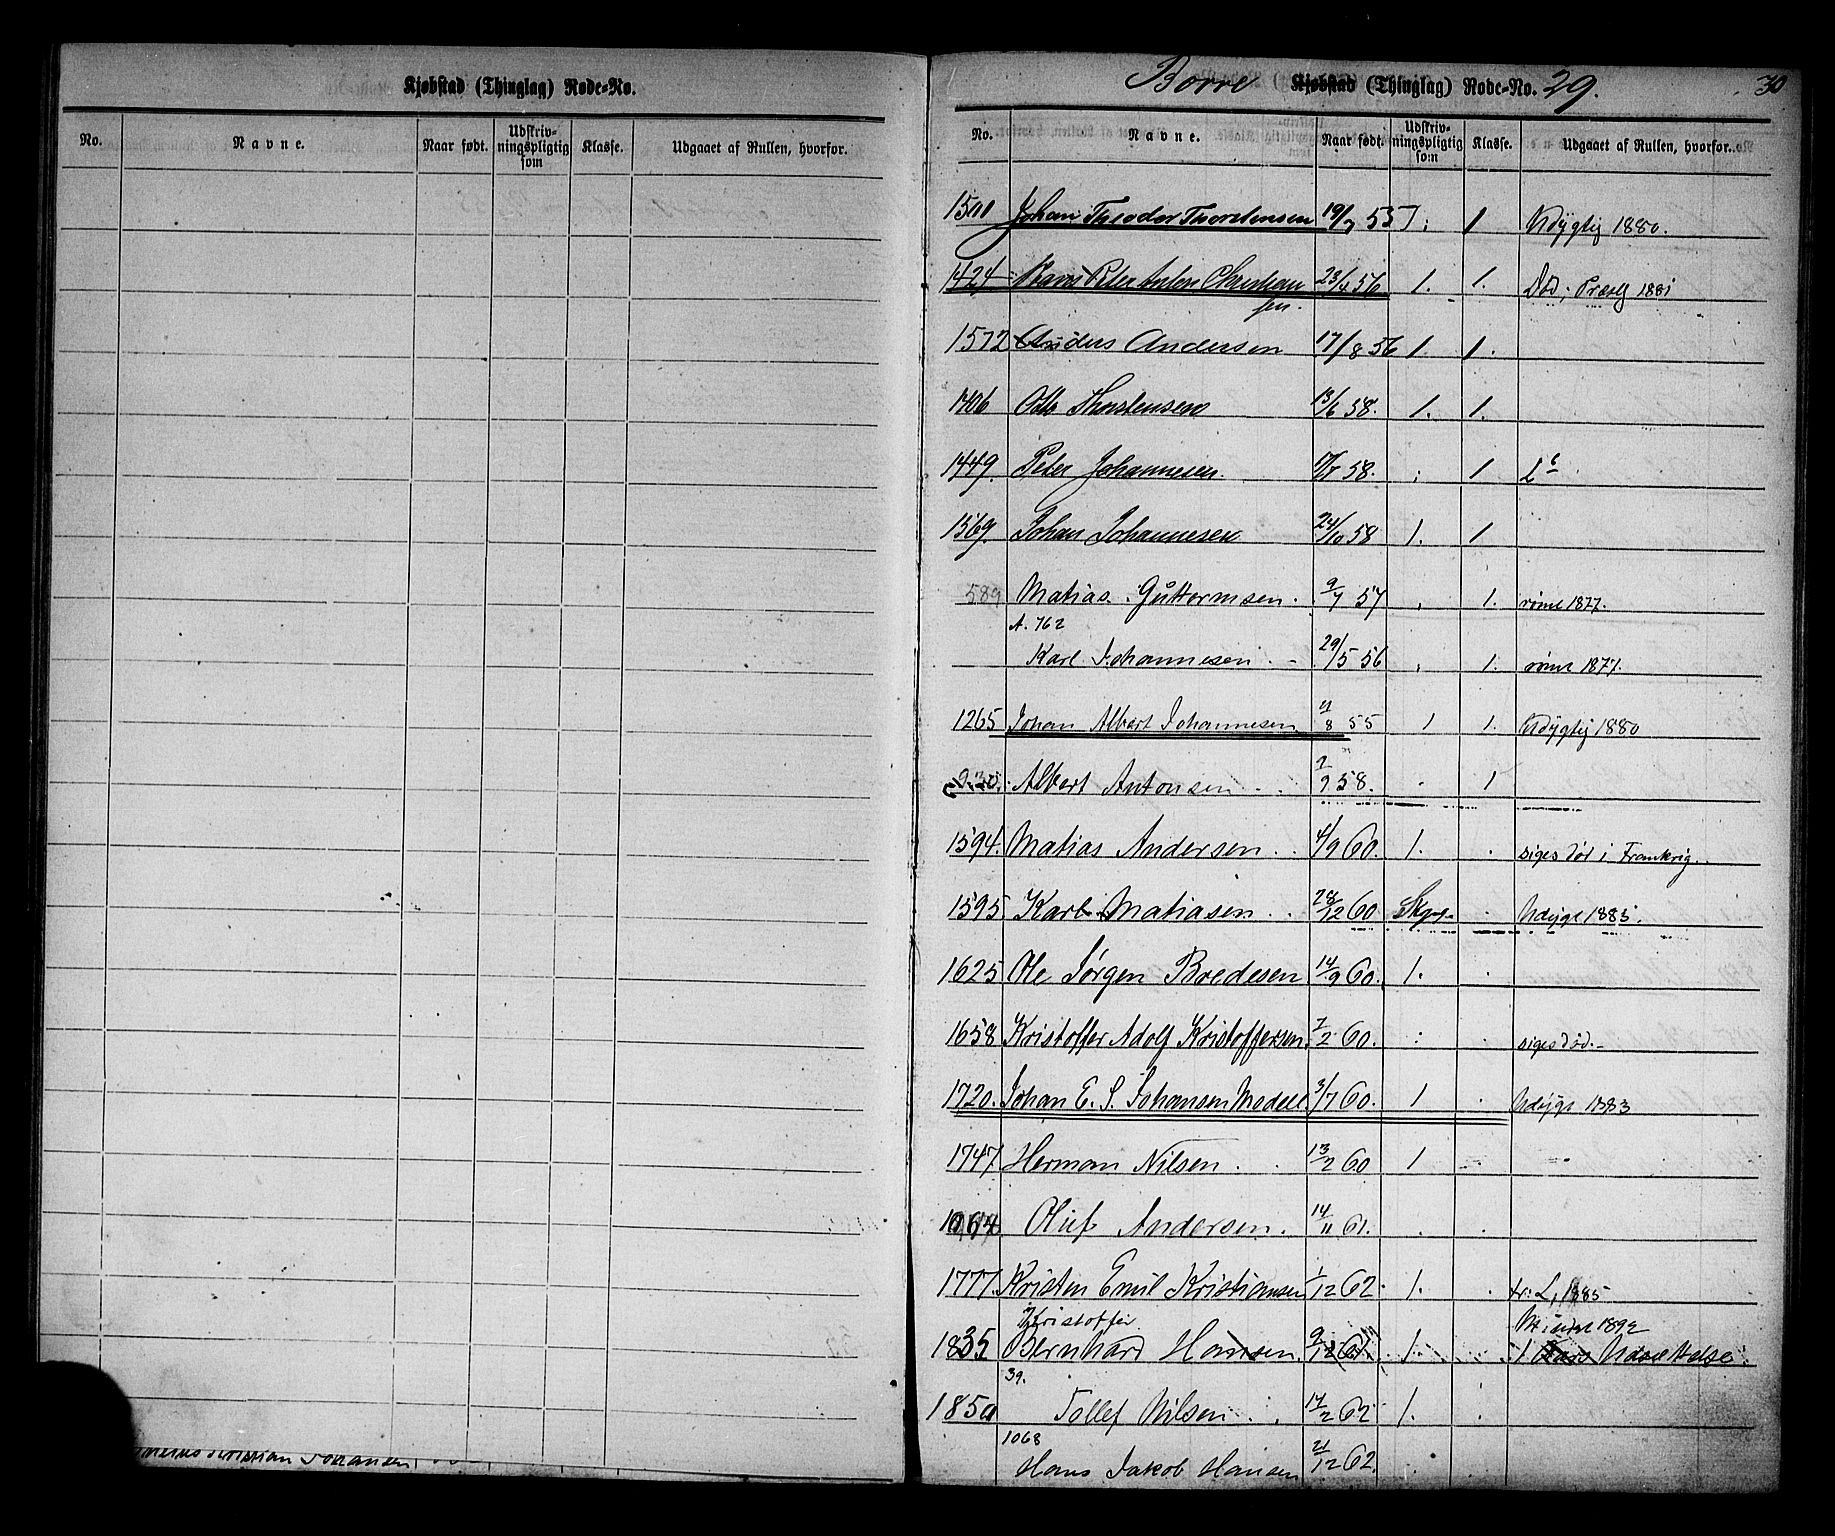 Kjøbstad (Thinglag) Rode-No.
No. Navne. Naar født. Udskriv-ningspligtig som Klasse. Udgaaet af Rullen, hvorfor.
Kristian Johansen
Borre Kjøbstad (Thinglag) Rode-No. 29. 30
No. Navne. Naar født. Udskriv-ningspligtig som Klasse. Udgaaet af Rullen, hvorfor.
Johan Theodor Thorstensen 19/7 55 1 Udygtig 1880.
1424 Hans Peter Anton Christian 23/4 56 1. 1. Død; Præst 1881
sen.
1572 Anders Andersen 17/8 56 1. 1.
1406 Otto Thorstensen 13/6 58. 1. 1.
1449. Peter Johannesen. 58. 1
1569. Johan Johannesen 24/10 58 1. 1
589 Matias Guttormsen. 9/7 57 1. rømt 1877.
A. 762
Karl Johannesen 29/5 56 1. rømt 1877.
1265 Johan Albert Johannesen 8 55 1 1. Udygtig 1880
930. Albert Antonsen 58. 1
1594. Matias Andersen 4/9 60. 1. siges død i Frankrig.
1595. Karl Matiasen 28/12 60 Udygt 1885.
1625 Ole Jørgen Bredesen 14/9 60. 1.
1658 Kristoffer Adolf Kristoffersen. 7/2 60. siges død.
1720. Johan E. S. Johansen Modell 3/7 60. 1 Udygt 1883
1747 Herman Nilsen. 13/2 60 1
1064 Oluf Andersen. 14/11 61.
1777. Kristen Emil Kristiansen 1/12 62. 1. fr: L, 1885
Kristoffer 1892
1835 Bernhard Hansen. 9/12 61 1.
39.
1850 Tollef Nilsen 17/2 62 1.
1068
Hans Jakob Hansen 21/12 62.